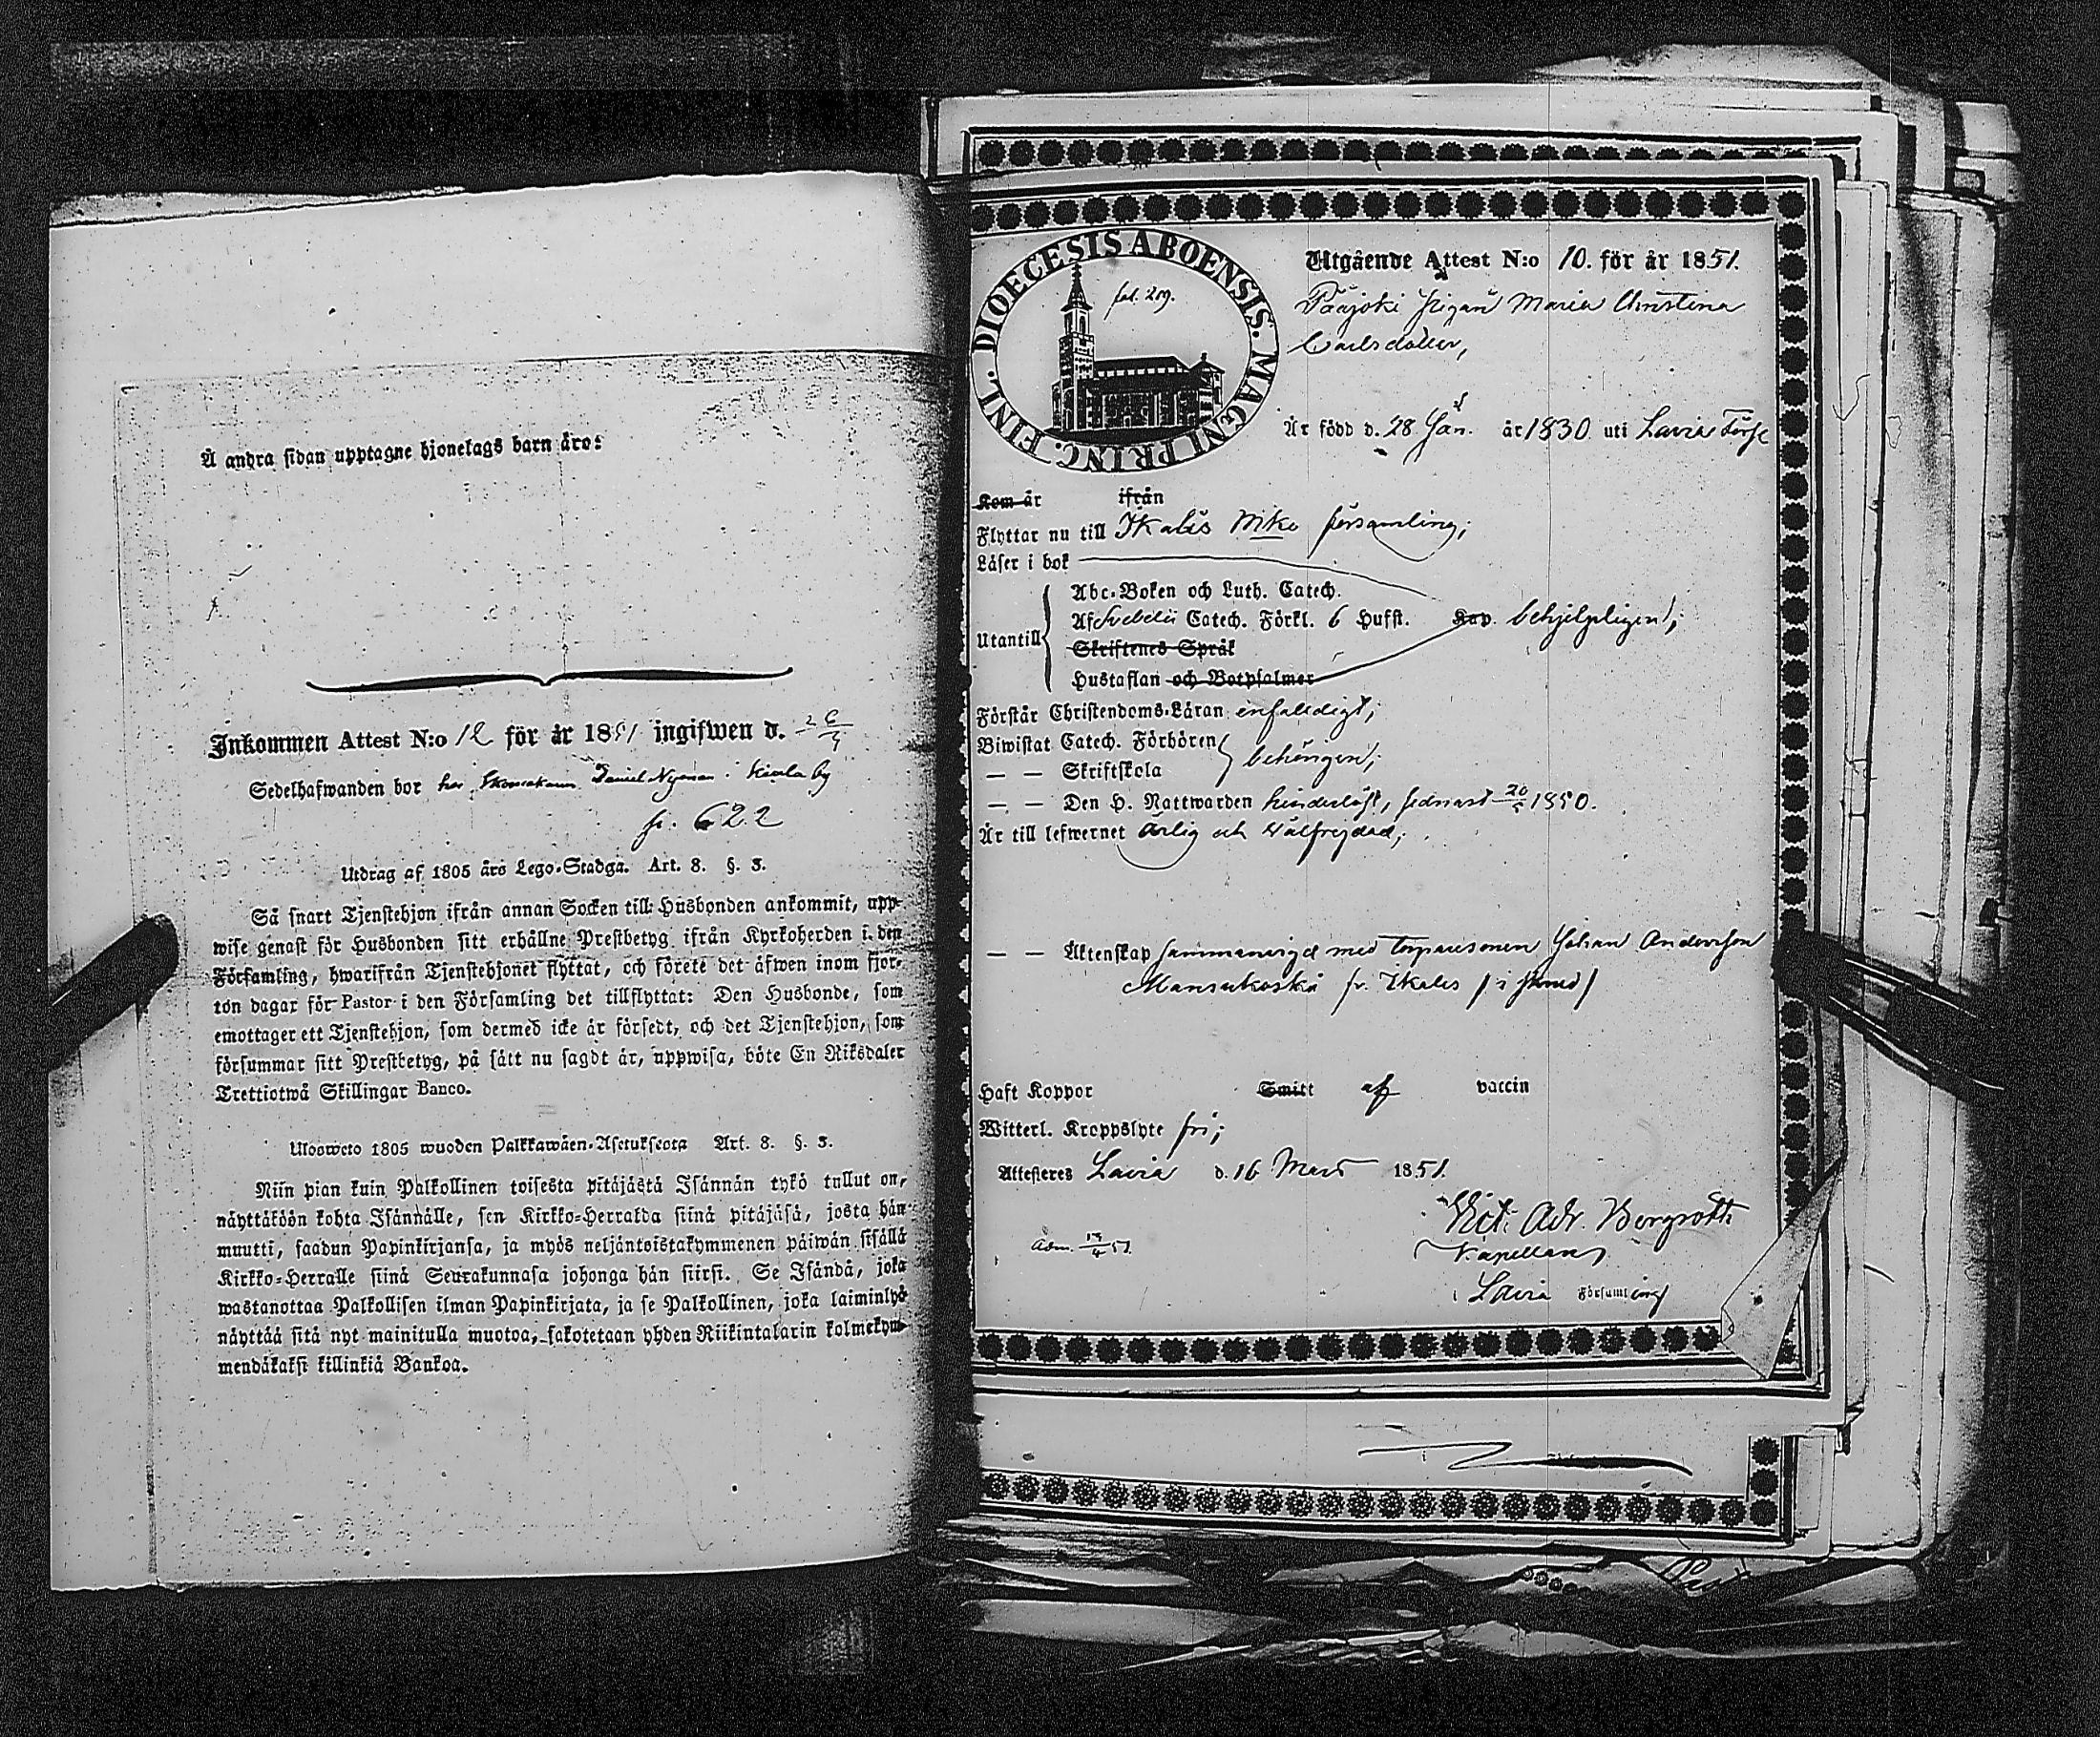 Å andra sidan upptagne hjonelags barn äro:
Inkommen Attest N:o 12 för år 1851 ingifwen d.
Sedelhafwanden bor hos Skomakarn Daniel Nyman i by
622
Utdrag af 1805 års Lego-Stadga. Art. 8. §. 3.
Så snart Tjenstehjon ifrån annan Socken till Husbonden ankommit, upp-
wise genast för Husbonden sitt erhållne Prestbetyg ifrån Kyrkoherden i den
Församling, hwarifrån Tjenstehjonet flyttat, och förete det äfwen inom fjor-
ton dagar för Pastor i den Församling det tillflyttat: Den Husbonde, som
emottager ett Tjenstehjon, som dermed icke är försedt, och det Tjenstehjon, som
försummar sitt Prestbetyg, på sätt nu sagdt är, uppwisa, böte En Riksdaler
Trettiotwå Skillingar Banco.
Ulosweto 1805 wuoden Palkkawäen-Asetuksesta Art. 8. §. 3.
Niin pian kuin Palkollinen toisesta pitäjästä Isännän tykö tullut on,
näyttäköön kohta Isännälle, sen Kirkko-Herralda siinä pitäjäsä, josta hän
muutti, saadun Papinkirjansa, ja myös neljäntoistakymmenen päiwän sisällä
Kirkko-Herralle siinä Seurakunnasa johonga hän siirsi. Se Isändä, joka
wastanottaa Palkollisen ilman Papinkirjata, ja se Palkollinen, joka laiminlyö
näyttää sitä nyt mainitulla muotoa, sakotetaan yhden Riikintalarin kolmekym-
mendäkaksi killinkiä Bankoa.
DIOECESIS ABOENSIS. MAGNI PRINC. FINL.
fol. 219.
Utgående Attest N:o 10. för år 1851.
Pääjoki pigan Maria Christina
Carlsdotter,
Är född d. 28 Jan. år 1830 uti Lavia
Kom år ifrån
Flyttar nu till Ikalis församling;
Läser i bok
Utantill
Abc-Boken och Luth. Catech.
Afsvebelii Catech. Förkl. 6 Hufst. Kap. behjelpligen;
Skriftenes Språk
Hustaflan och Botpsalmer
Förstår Christendoms-Läran enfaldigt;
Biwistat Catech. Förhören behörigen;
— — Skriftskola
— — Den H. Nattwarden hinderlöst, sednast 1850.
Är till lefwernet ärlig och wälfrejdad;
— — Äktenskap sammanvigd med torparesonen Johan Andersson
Mansikoski fr. Ikalis
Haft Koppor Smitt af vaccin
Witterl. Kroppslyte fri;
Attesteres Lavia d. 16 Mars 1851.
Adm. 19/4 51
Vict. Adr. Bergroth
Kapellan
i Lavia Församling